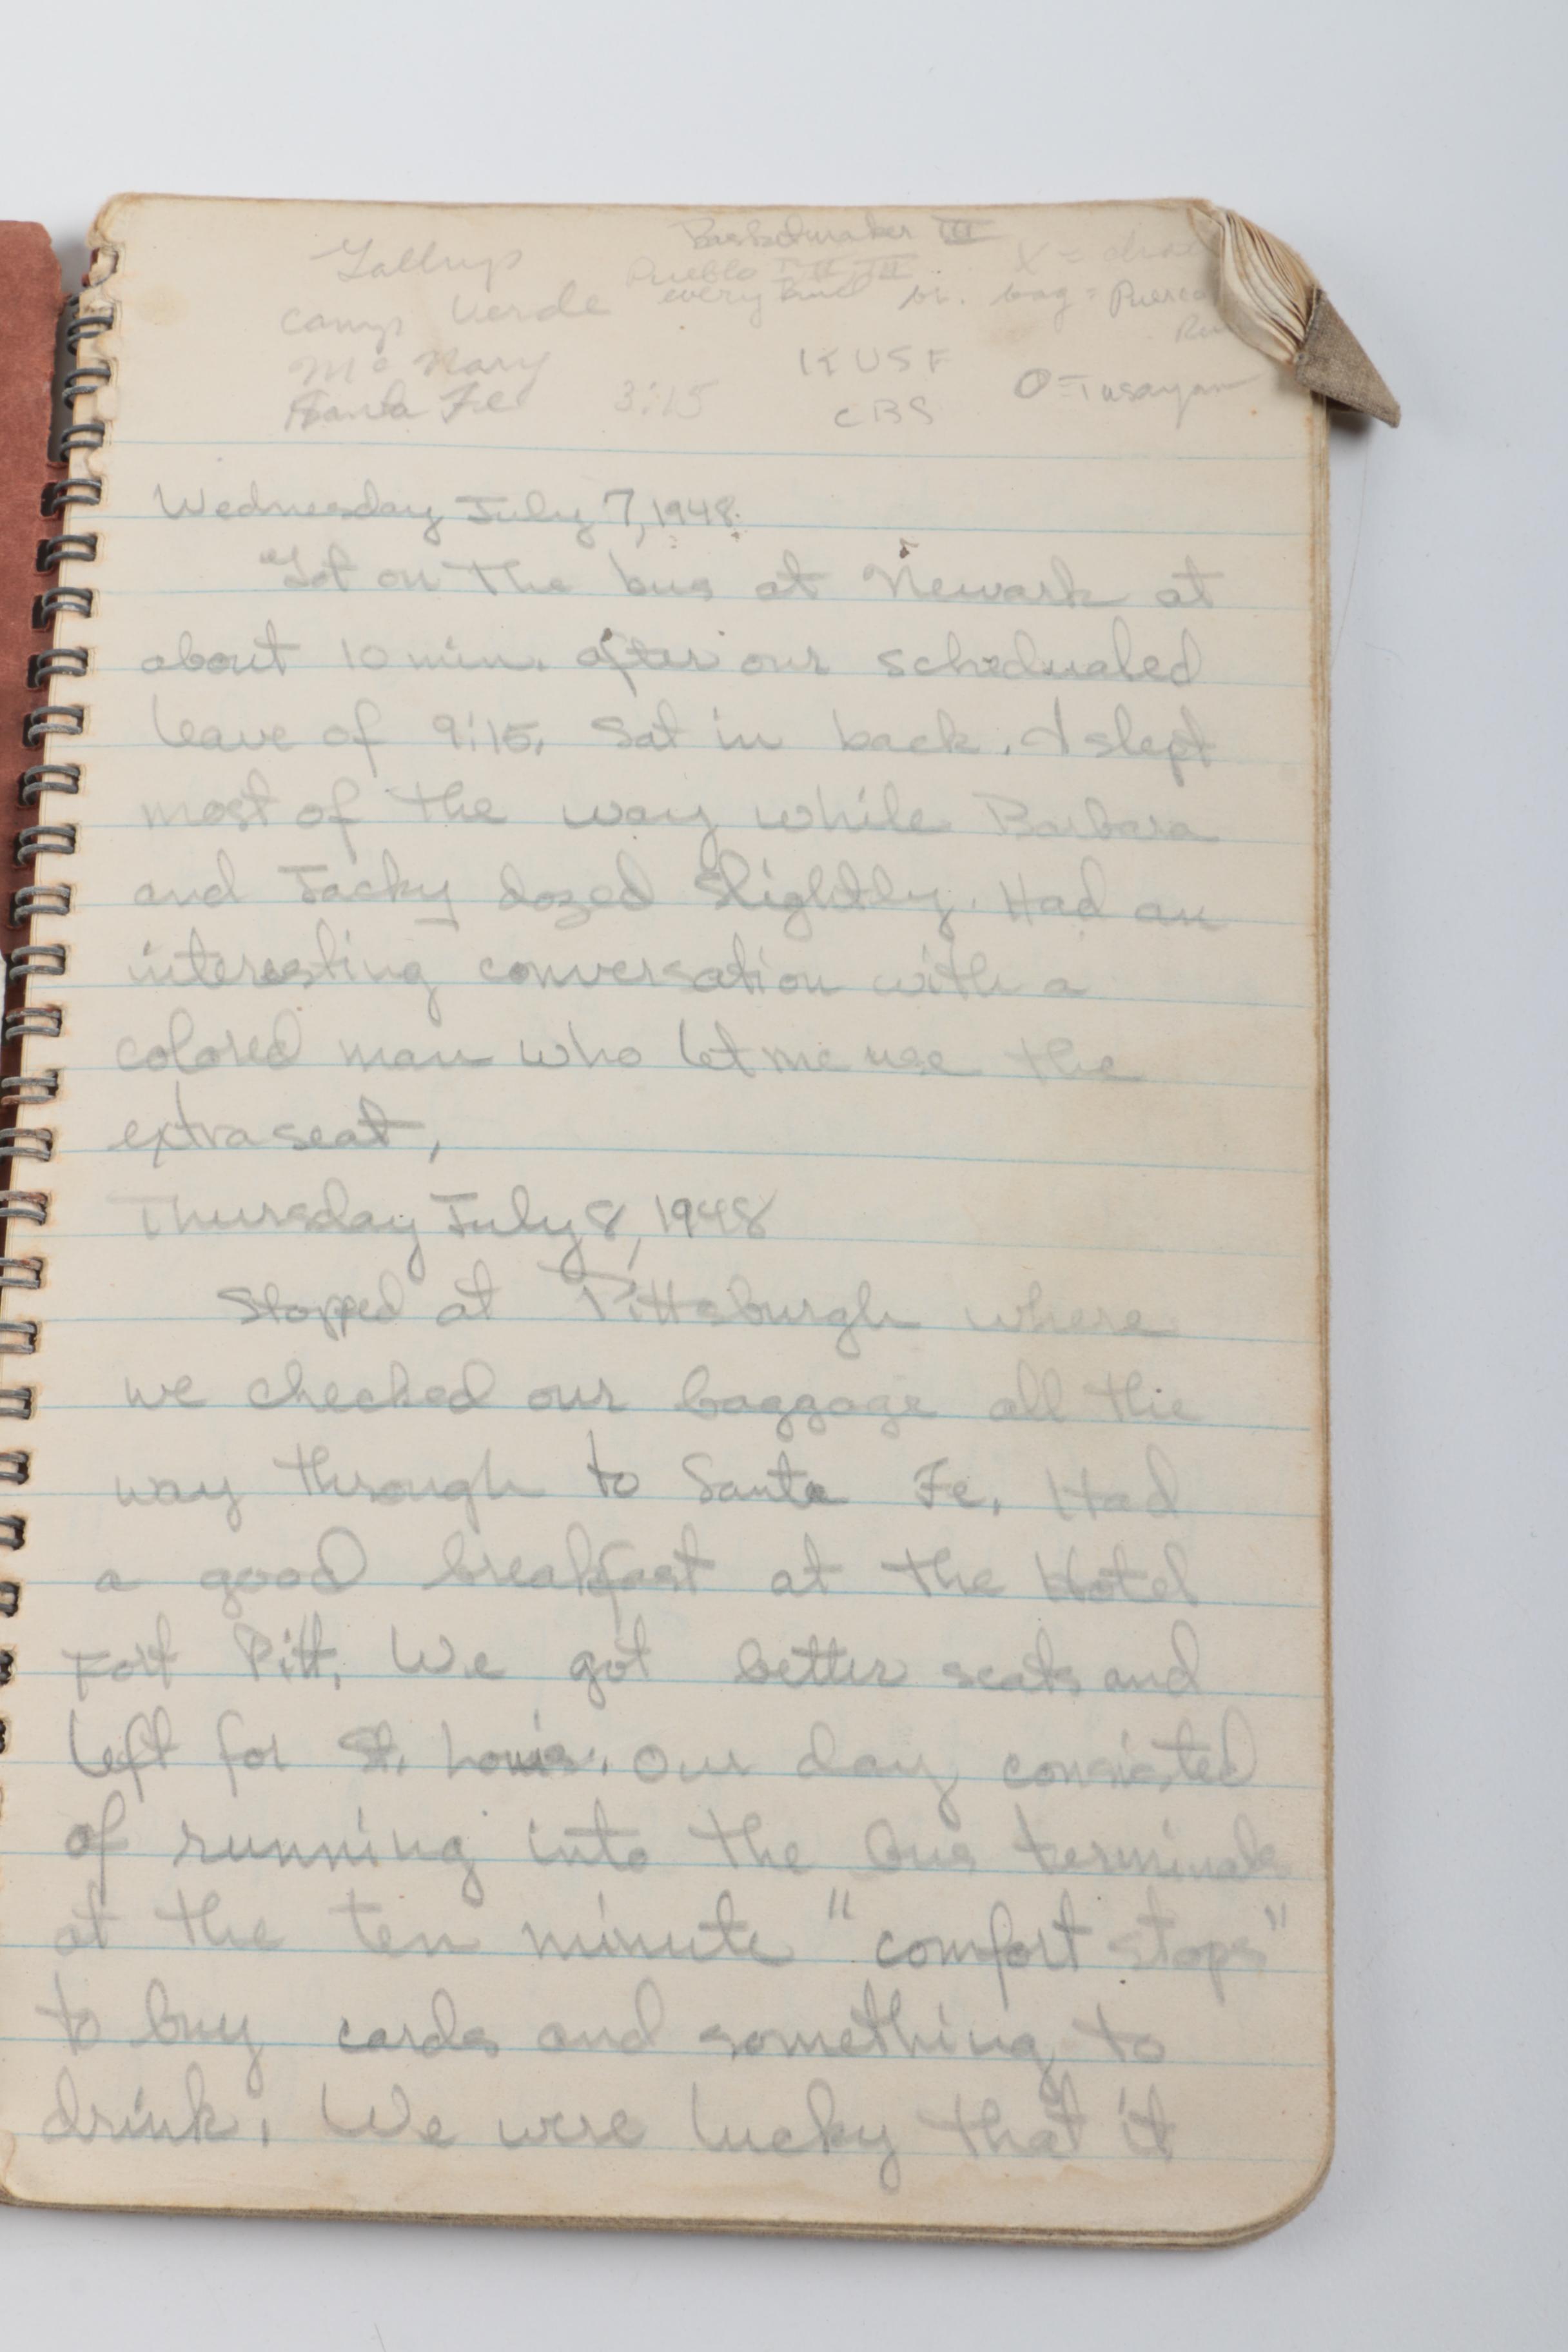 Gallup
Basketmaker III
Pueblo I II III
X =
Camp Verde
every
br. bag = Puerco
Mc Nary
KUSF
Santa Fe
3:15
CBS
O = Tusayan
Wednesday July 7, 1948.
Got on the bus at Newark at
about 10 min. after our schedualed
leave of 9:15. Sat in back. I slept
most of the way while Barbara
and Jacky dozed slightly. Had an
interesting conversation with a
colored man who let me use the
extra seat.
Thursday July 8, 1948
Stopped at Pittsburgh where
we checked our baggage all the
way through to Santa Fe. Had
a good breakfast at the Hotel
Fort Pitt. We got better seats and
left for St. Louis. Our day consisted
of running into the bus terminals
at the ten minute "comfort stops"
to buy cards and something to
drink. We were lucky that it